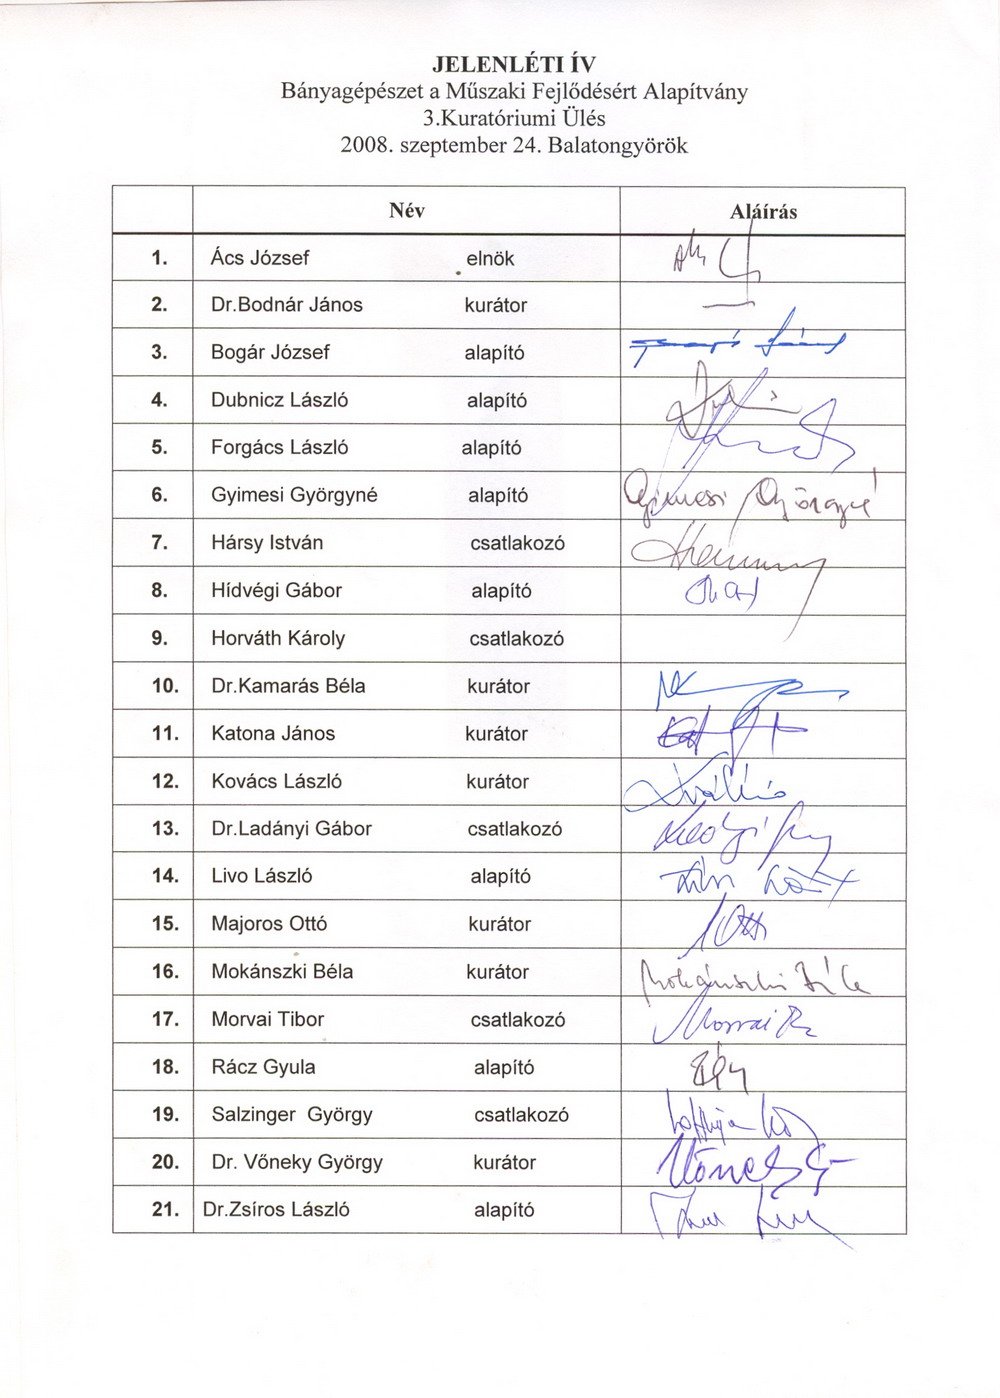 JELENLÉTI ÍV
Bányagépészet a Műszaki Fejlődésért Alapítvány
3.Kuratóriumi Ülés
2008. szeptember 24. Balatongyörök
Név Aláírás
1. Ács József elnök
2. Dr.Bodnár János kurátor
3. Bogár József alapító
4. Dubnicz László alapító
5. Forgács László alapító
6. Gyimesi Györgyné alapító Gyimesi Györgyné
7. Hársy István csatlakozó
8. Hídvégi Gábor alapító
9. Horváth Károly csatlakozó
10. Dr.Kamarás Béla kurátor
11. Katona János kurátor
12. Kovács László kurátor
13. Dr.Ladányi Gábor csatlakozó
14. Livo László alapító
15. Majoros Ottó kurátor
16. Mokánszki Béla kurátor Mokánszki Béla
17. Morvai Tibor csatlakozó Morvai
18. Rácz Gyula alapító
19. Salzinger György csatlakozó
20. Dr. Vőneky György kurátor
21. Dr.Zsíros László alapító